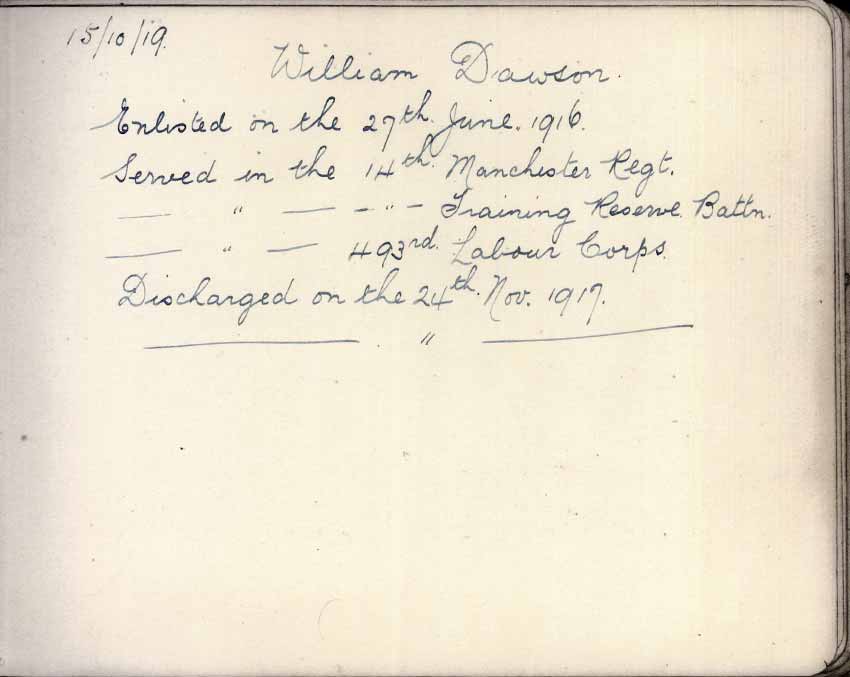 15/10/19.
William Dawson.
Enlisted on the 27th. June. 1916.
Served in the 14th. Manchester Regt.
— " — - " - Training Reserve. Battn.
— " — 493rd. Labour Corps.
Discharged on the 24th. Nov. 1917.
— " —